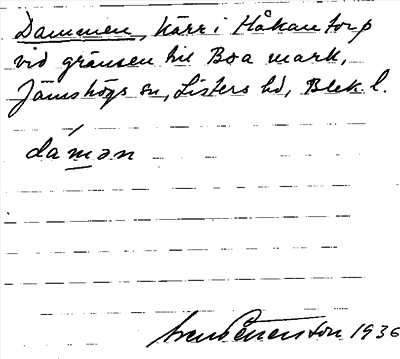 Dammen, kärr i Håkantorp
vid gränsen till Boa mark,
Jämshögs sn, Listers hd, Blek. l.
damən
1936